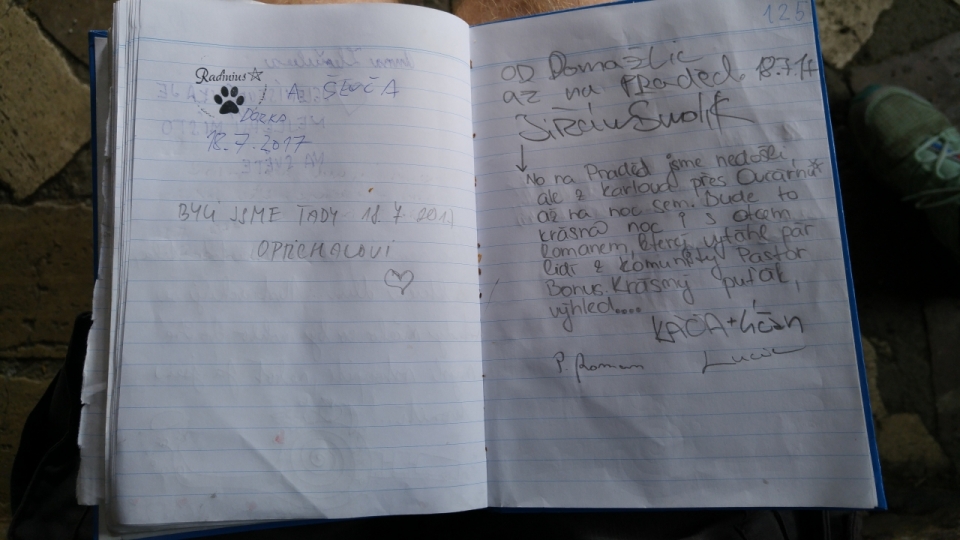 Radnius
A ŠEVČA
DORKA
18.7.2017
BYLI JSME TADY 18.7.2017
OPRCHALOVI
125
OD Domažlic 18.7.17
až na Praděd.
No na Praděd jsme nedošli,
ale z Karlova přes Ovčárnu
až na noc sem. Bude to
krásná noc i s otcem
Romanem, který vytáhl pár
lidí z komunity Pastor
Bonus. Krásný puťák,
výhled....
KÁČA +
P. Roman Lucie